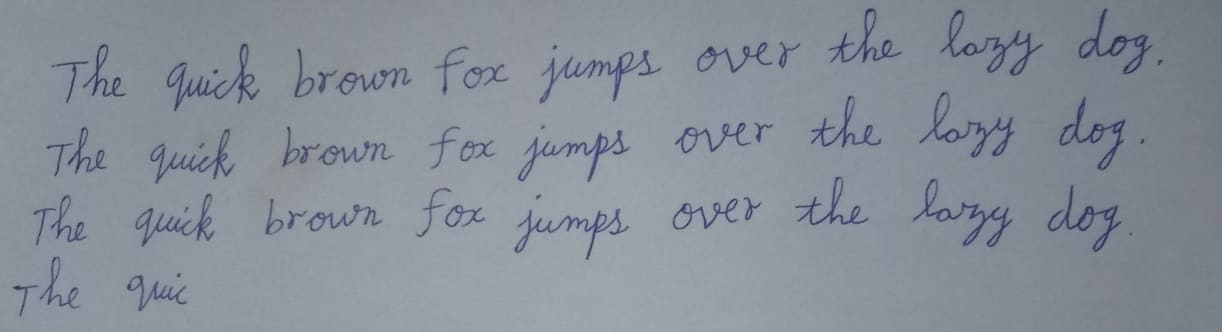 The quick brown fox jumps over the lazy dog.
The quick brown fox jumps over the lazy dog.
The quick brown fox jumps over the lazy dog.
The quic